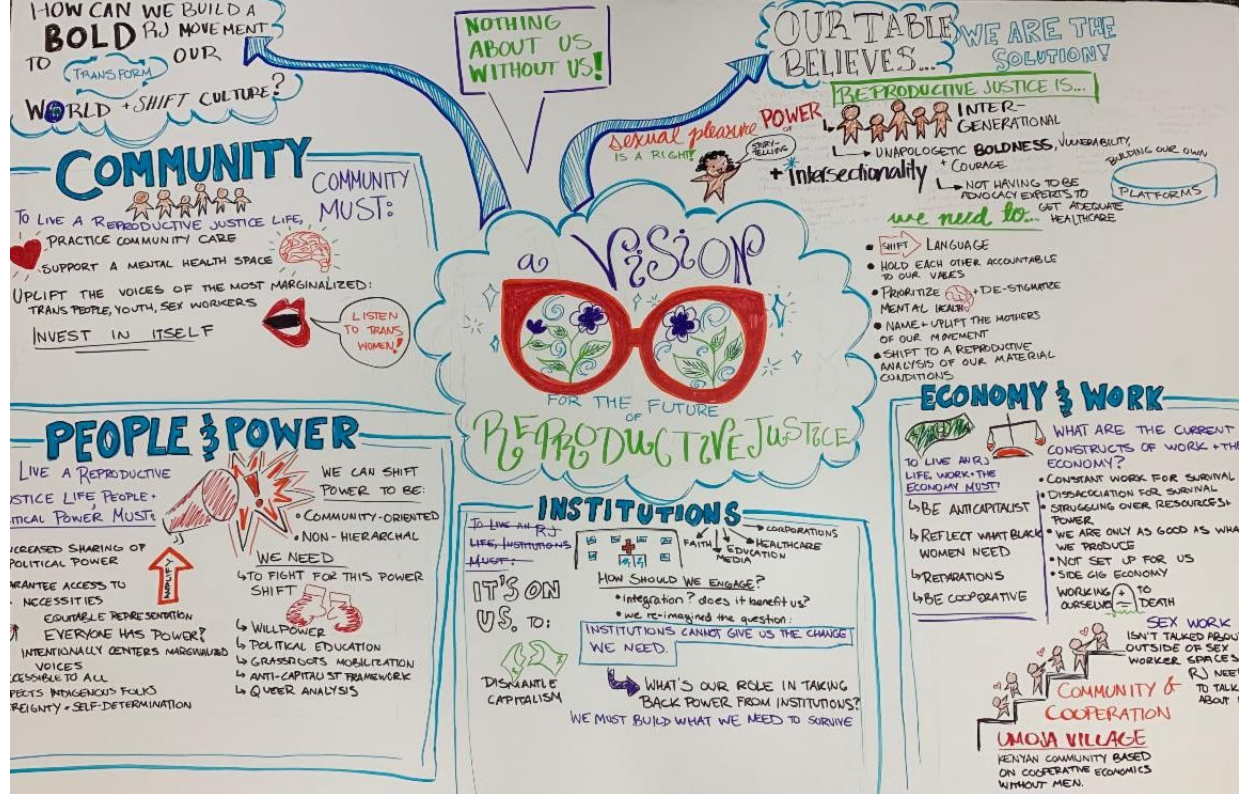 HOW CAN WE BUILD A
BOLD RJ MOVEMENT
TO TRANSFORM OUR
WORLD + SHIFT CULTURE?
NOTHING
ABOUT US
WITHOUT US!
OUR TABLE
BELIEVES...
WE ARE THE
SOLUTION!
REPRODUCTIVE JUSTICE IS...
INTER-
GENERATIONAL
UNAPOLOGETIC BOLDNESS, VULNERABILITY,
+ COURAGE
NOT HAVING TO BE
ADVOCACY EXPERTS TO
GET ADEQUATE
HEALTHCARE
BUILDING OUR OWN
PLATFORMS
sexual pleasure
IS A RIGHT!
POWER
OF
STORY-
TELLING
+ Intersectionality
we need to...
• SHIFT LANGUAGE
• HOLD EACH OTHER ACCOUNTABLE
TO OUR VALUES
• PRIORITIZE + DE-STIGMATIZE
MENTAL HEALTH
• NAME + UPLIFT THE MOTHERS
OF OUR MOVEMENT
• SHIFT TO A REPRODUCTIVE
ANALYSIS OF OUR MATERIAL
CONDITIONS
COMMUNITY
TO LIVE A REPRODUCTIVE JUSTICE LIFE,
COMMUNITY
MUST:
PRACTICE COMMUNITY CARE
SUPPORT A MENTAL HEALTH SPACE
UPLIFT THE VOICES OF THE MOST MARGINALIZED:
TRANS PEOPLE, YOUTH, SEX WORKERS
INVEST IN ITSELF
LISTEN
TO TRANS
WOMEN!
a VISION
FOR THE FUTURE
OF
REPRODUCTIVE JUSTICE
PEOPLE & POWER
LIVE A REPRODUCTIVE
STICE LIFE, PEOPLE +
ITICAL POWER MUST:
CREASED SHARING OF
POLITICAL POWER
RANTEE ACCESS TO
NECESSITIES
EQUITABLE REPRESENTATION
EVERYONE HAS POWER?
INTENTIONALLY CENTERS MARGINALIZED
VOICES
CESSIBLE TO ALL
PECTS INDIGENOUS FOLKS
EREIGNTY + SELF-DETERMINATION
AMPLIFY
WE CAN SHIFT
POWER TO BE:
• COMMUNITY-ORIENTED
• NON-HIERARCHAL
WE NEED
↳ TO FIGHT FOR THIS POWER
SHIFT
↳ WILLPOWER
↳ POLITICAL EDUCATION
↳ GRASSROOTS MOBILIZATION
↳ ANTI-CAPITALIST FRAMEWORK
↳ QUEER ANALYSIS
INSTITUTIONS
TO LIVE AN RJ
LIFE, INSTITUTIONS
MUST:
IT'S ON
US. TO:
DISMANTLE
CAPITALISM
FAITH
MEDIA
EDUCATION
HEALTHCARE
CORPORATIONS
HOW SHOULD WE ENGAGE?
• integration? does it benefit us?
• we re-imagined the question:
INSTITUTIONS CANNOT GIVE US THE CHANGE
WE NEED.
WHAT'S OUR ROLE IN TAKING
BACK POWER FROM INSTITUTIONS?
WE MUST BUILD WHAT WE NEED TO SURVIVE
ECONOMY & WORK
TO LIVE AN RJ
LIFE, WORK + THE
ECONOMY MUST:
↳ BE ANTICAPITALIST
↳ REFLECT WHAT BLACK
WOMEN NEED
↳ REPARATIONS
↳ BE COOPERATIVE
WHAT ARE THE CURRENT
CONSTRUCTS OF WORK + THE
ECONOMY?
• CONSTANT WORK FOR SURVIVAL
• DISSACOCIATION FOR SURVIVAL
• STRUGGLING OVER RESOURCES +
POWER
• WE ARE ONLY AS GOOD AS WHAT
WE PRODUCE
• NOT SET UP FOR US
• SIDE GIG ECONOMY
WORKING TO
OURSELVES DEATH
SEX WORK
ISN'T TALKED ABOUT
OUTSIDE OF SEX
WORKER SPACES
RJ NEE
TO TALK
ABOUT
COMMUNITY &
COOPERATION
UMOJA VILLAGE
KENYAN COMMUNITY BASED
ON COOPERATIVE ECONOMICS
WITHOUT MEN.